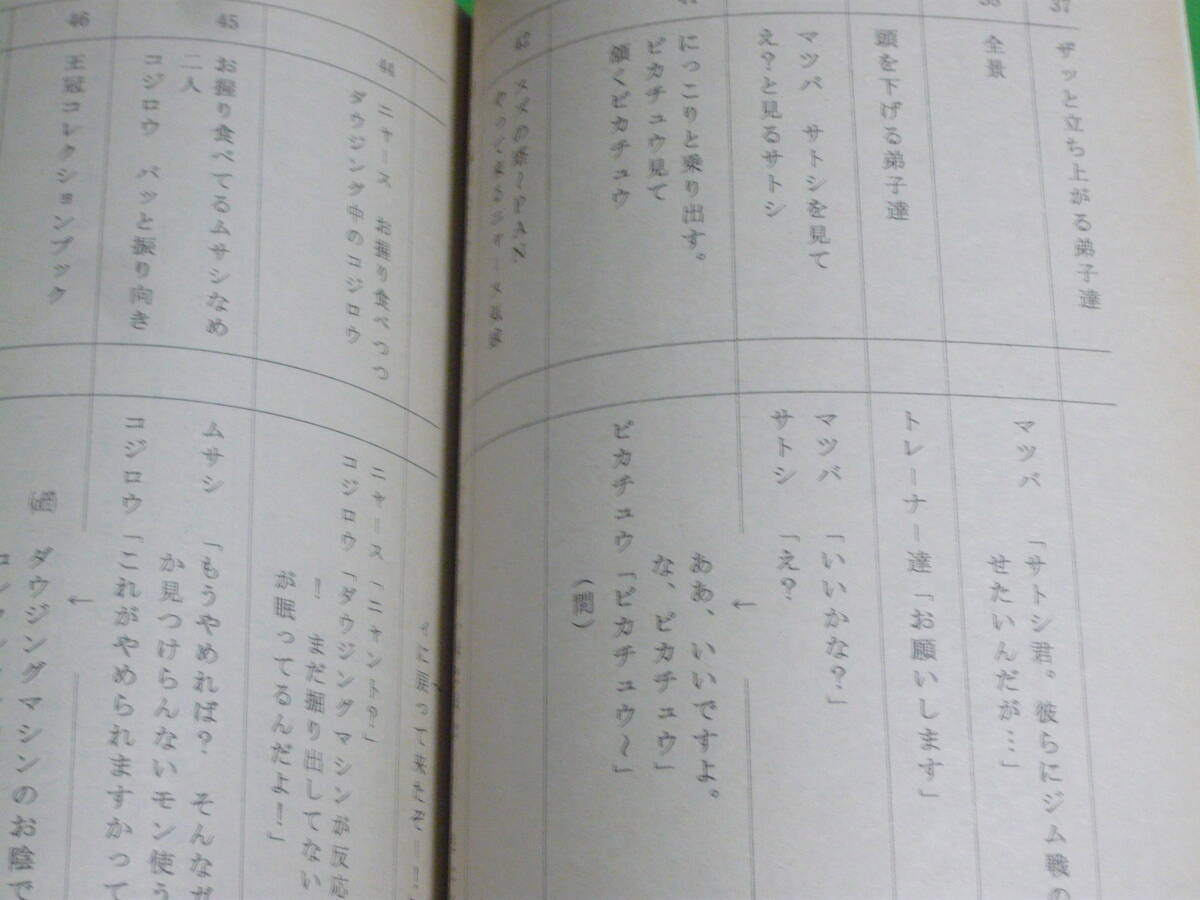 37
ザッと立ち上がる弟子達
マツバ 「サトシ君。彼らにジム戦の
せたいんだが…」
38
全景
頭を下げる弟子達
トレーナー達「お願いします」
マツバ サトシを見て
え?と見るサトシ
マツバ 「いいかな?」
サトシ 「え?
41
にっこりと乗り出す。
ピカチュウ見て
頷くピカチュウ
ああ、いいですよ。
な、ピカチュウ」
ピカチュウ「ピカチュウ〜」
(間)
PAN
に戻って来たぞ
44
ニャース お握り食べつつ
ダウジング中のコジロウ
ニャース「ニャント?」
コジロウ「ダウジングマシンが反応
! まだ掘り出してない
が眠ってるんだよ!」
45
お握り食べてるムサシなめ
二人
コジロウ バッと振り向き
ムサシ 「もうやめれば? そんなガ
か見つけらんないモン使う
コジロウ「これがやめられますかって
46
王冠コレクションブック
ダウジングマシンのお陰で